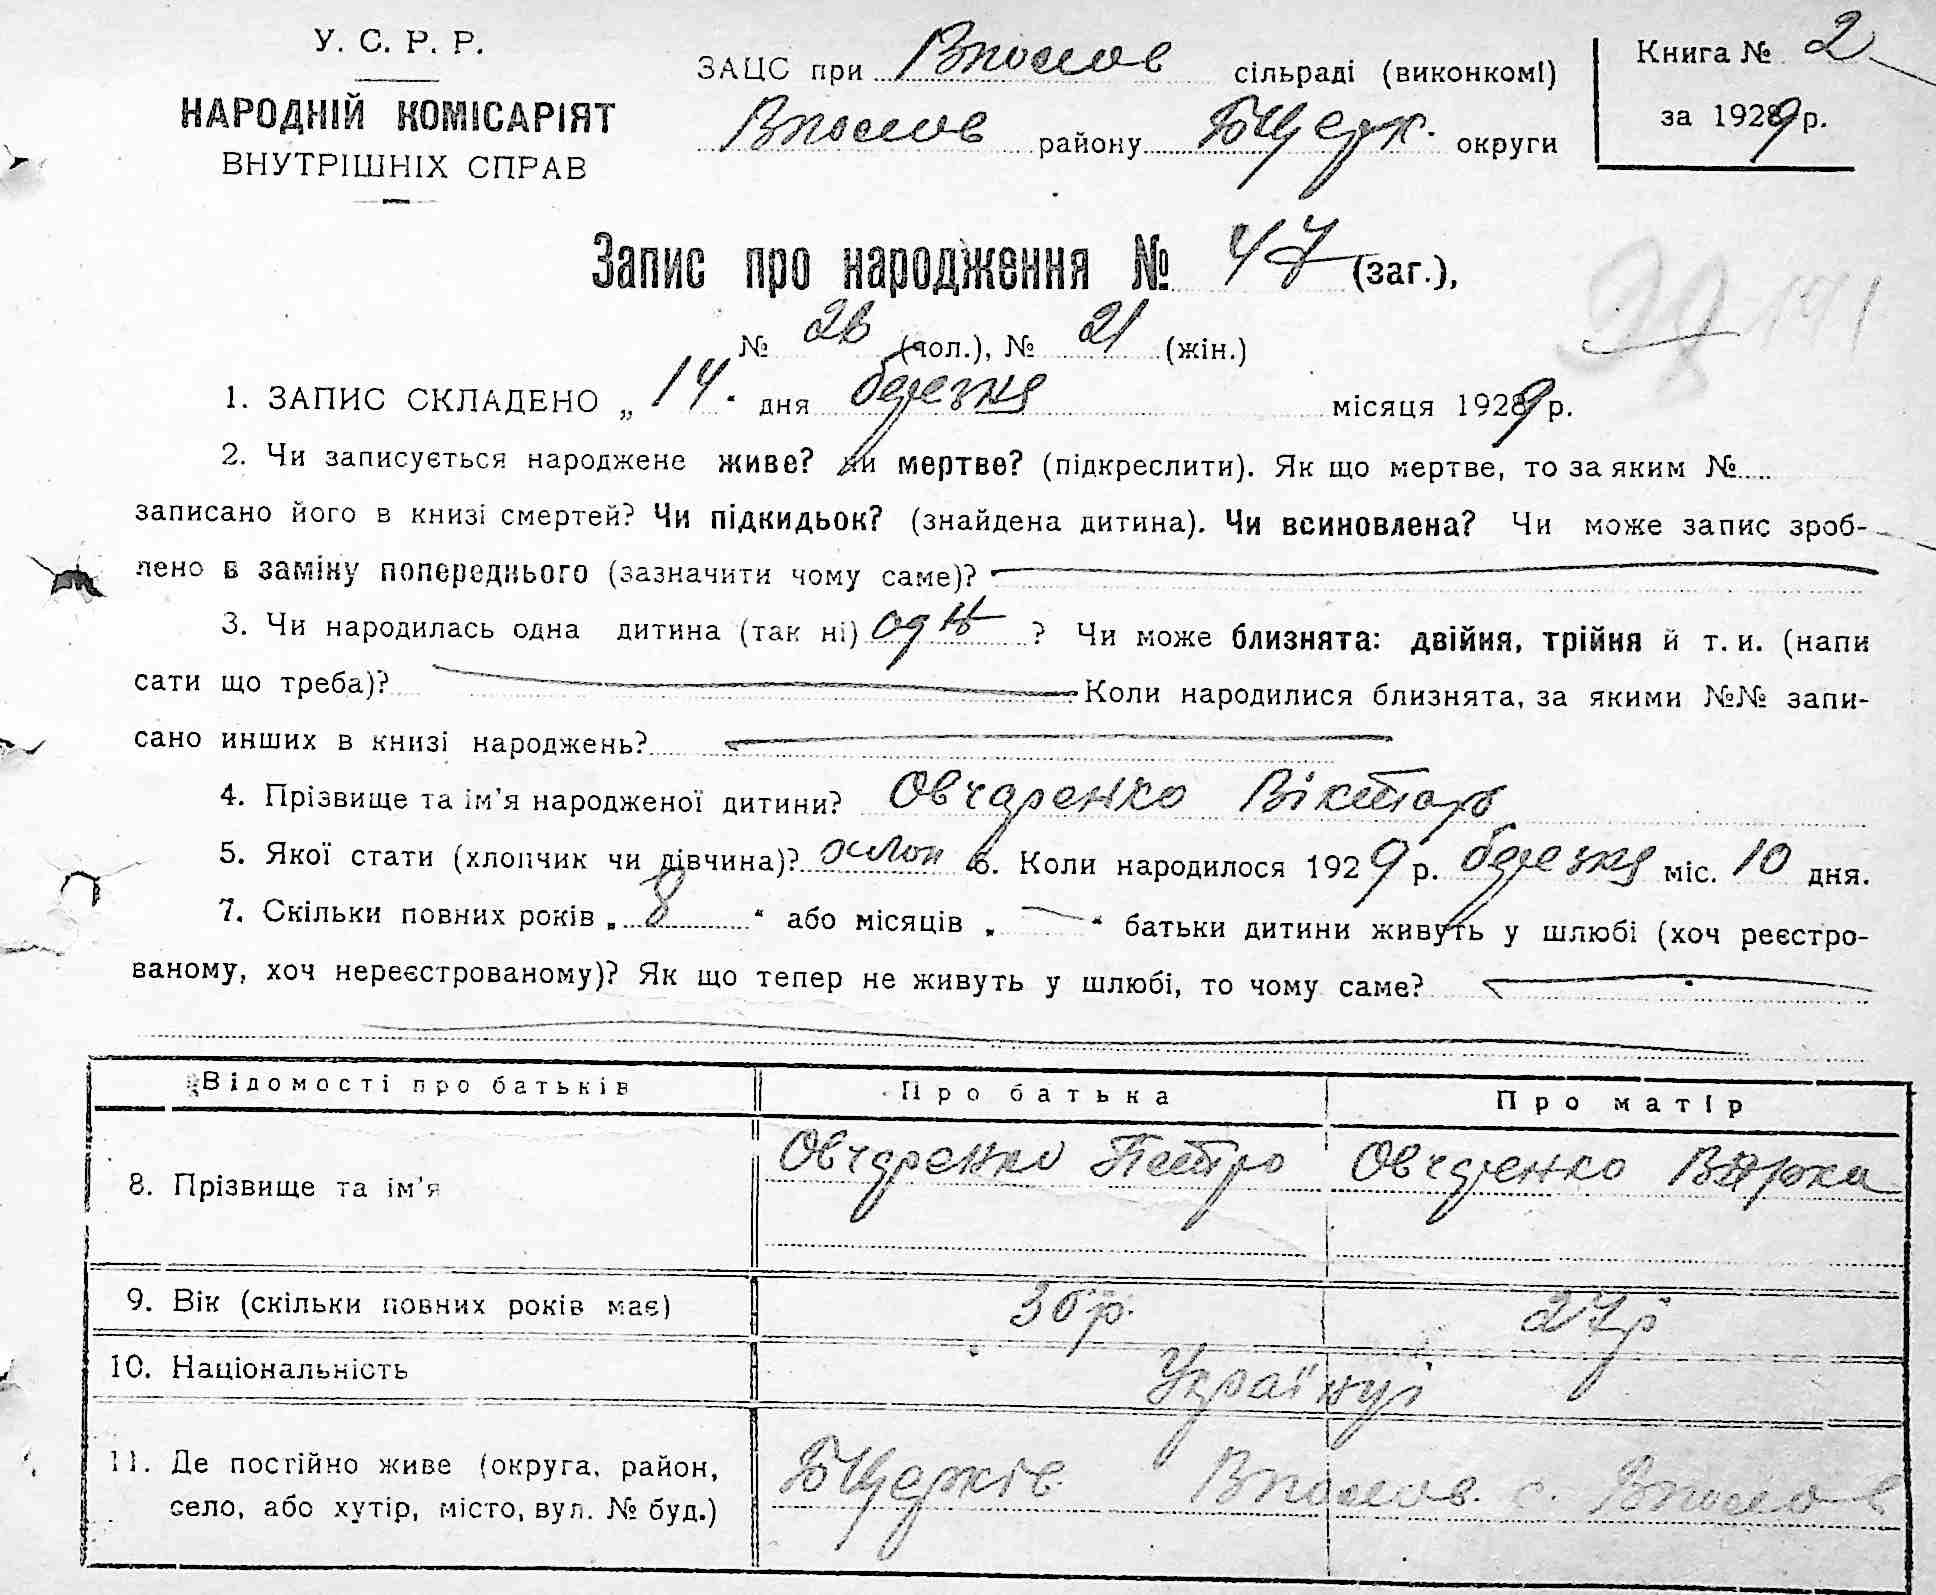 У. С. Р. Р.
НАРОДНІЙ КОМІСАРІЯТ
ВНУТРІШНІХ СПРАВ
ЗАЦС при Вполов сільраді (виконкомі)
Вполов району БЦерк. округи
Книга № 2
за 1929 р.
Запис про народження № 47 (заг.),
№ 26 (чол.), № 21 (жін.)
1. ЗАПИС СКЛАДЕНО „ 14 " дня березня місяця 1929 р.
2. Чи записується народжене живе? чи мертве? (підкреслити). Як що мертве, то за яким №
записано його в книзі смертей? Чи підкидьок? (знайдена дитина). Чи всиновлена? Чи може запис зроб-
лено в заміну попереднього (зазначити чому саме)?
3. Чи народилась одна дитина (так ні) одн ? Чи може близнята: двійня, трійня й т. и. (напи
сати що треба)? Коли народилися близнята, за якими №№ запи-
сано инших в книзі народжень?
4. Прізвище та ім'я народженої дитини? Овчаренко Вікторь
5. Якої стати (хлопчик чи дівчина)? хлоп 6. Коли народилося 1929 р. березня міс. 10 дня.
7. Скільки повних років „ 8 " або місяців „ — " батьки дитини живуть у шлюбі (хоч реєстро-
ваному, хоч нереєстрованому)? Як що тепер не живуть у шлюбі, то чому саме?
Відомості про батьків Про батька Про матір
8. Прізвище та ім'я Овчаренко Петро Овчаренко Вярка
9. Вік (скільки повних років має) 30 р. 27 р
10. Національність Українці
11. Де постійно живе (округа, район, БЦерків Вполов. с. Вполов
село, або хутір, місто, вул. № буд.)